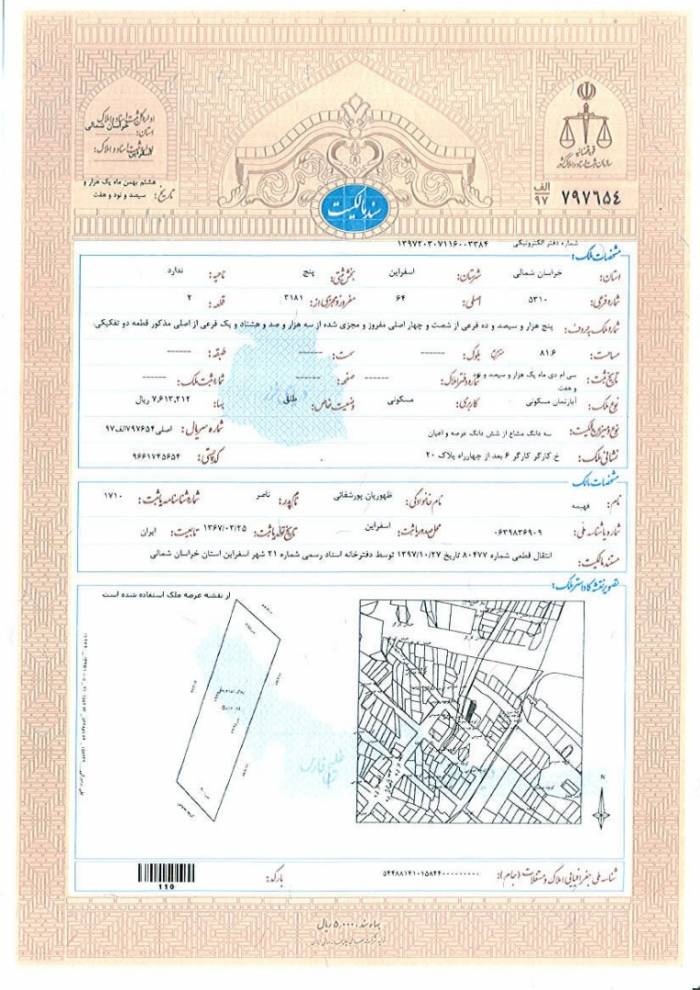 اداره کل ثبت اسناد و املاک
استان: خراسان شمالی
اداره ثبت اسناد و املاک: اسفراین
تاریخ: هشتم بهمن ماه یک هزار و سیصد و نود و هفت
قوه قضائیه
سازمان ثبت اسناد و املاک کشور
۷۹۷۶۵۴ الف ۹۷
سند مالکیت
شماره دفتر الکترونیکی ۱۳۹۷۲۰۳۰۷۱۱۶۰۰۳۳۸۴
مشخصات ملک:
استان: خراسان شمالی شهرستان: اسفراین بخش ثبتی: پنج ناحیه: ندارد
شماره فرعی: ۵۳۱۰ اصلی: ۶۴ مفروز و مجزی از: ۳۱۸۱ قطعه: ۲
شماره ملک به حروف: پنج هزار و سیصد و ده فرعی از شصت و چهار اصلی مفروز و مجزی شده از سه هزار و صد و هشتاد و یک فرعی از اصلی مذکور قطعه دو تفکیکی.
مساحت: ۸۱.۶ مترمربع بلوک: ------ سمت: ------ طبقه: ------
تاریخ ثبت: سی ام دی ماه یک هزار و سیصد و نود و هفت شماره دفتر املاک: ------ صفحه: ------ شماره ثبت ملک: ------
نوع ملک: آپارتمان مسکونی کاربری: مسکونی وضعیت خاص: طلق بها: ۷,۶۱۳,۲۱۲ ریال
نوع و میزان مالکیت: سه دانگ مشاع از شش دانگ عرصه و اعیان شماره سریال: اصلی۷۹۷۶۵۴الف۹۷
نشانی ملک: خ کارگر کارگر ۶ بعد از چهارراه پلاک ۲۰ کد پستی: ۹۶۶۱۷۴۵۶۵۴
مشخصات مالک:
نام: فهیمه نام خانوادگی: ظهوریان پورشفائی نام پدر: ناصر شماره شناسنامه یا ثبت: ۱۷۱۰
شماره یا شناسه ملی: ۰۶۳۹۸۳۶۹۰۹ محل صدور یا ثبت: اسفراین تاریخ تولد یا ثبت: ۱۳۶۷/۰۲/۲۵ تابعیت: ایران
مستند مالکیت: انتقال قطعی شماره ۸۰۴۷۷ تاریخ ۱۳۹۷/۱۰/۲۷ توسط دفترخانه اسناد رسمی شماره ۲۱ شهر اسفراین استان خراسان شمالی
تصویر نقشه کاداستر ملک:
از نقشه عرصه ملک استفاده شده است
خلیج فارس
N
شناسه ملی جغرافیایی املاک و مستغلات (جام):
بارکد:
110
بهاء سند: ۵,۰۰۰ ریال